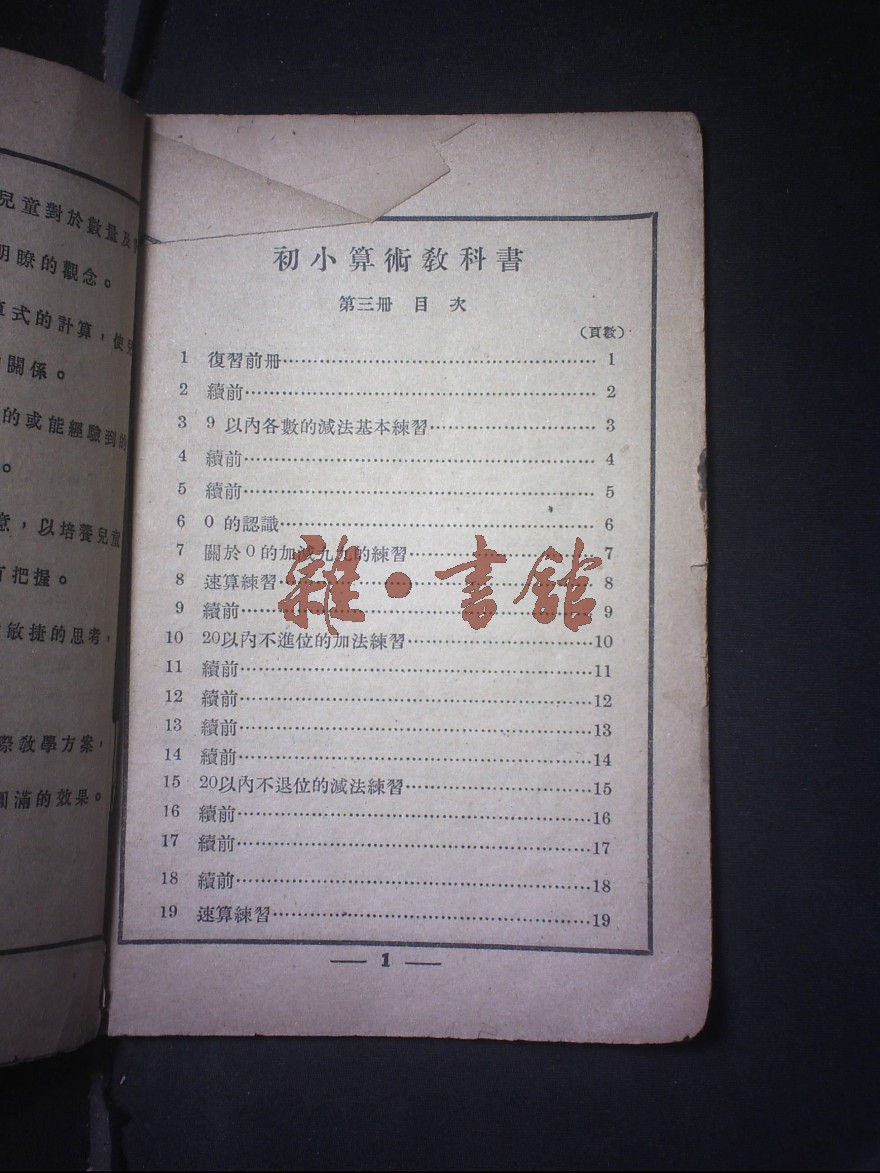 兒童對於數量及
明瞭的觀念。
算式的計算，使兒
關係。
的或能經驗到的
。
意，以培養兒童
有把握。
敏捷的思考，
際教學方案，
圓滿的效果。
初小算術教科書
第三冊 目次
（頁數）
1 復習前冊………………1
2 續前………………2
3 9 以內各數的減法基本練習………………3
4 續前………………4
5 續前………………5
6 0 的認識………………6
7 關於 0 的加減九九的練習………………7
8 速算練習………………8
9 續前………………9
10 20以內不進位的加法練習………………10
11 續前………………11
12 續前………………12
13 續前………………13
14 續前………………14
15 20以內不退位的減法練習………………15
16 續前………………16
17 續前………………17
18 續前………………18
19 速算練習………………19
— 1 —
雜·書館